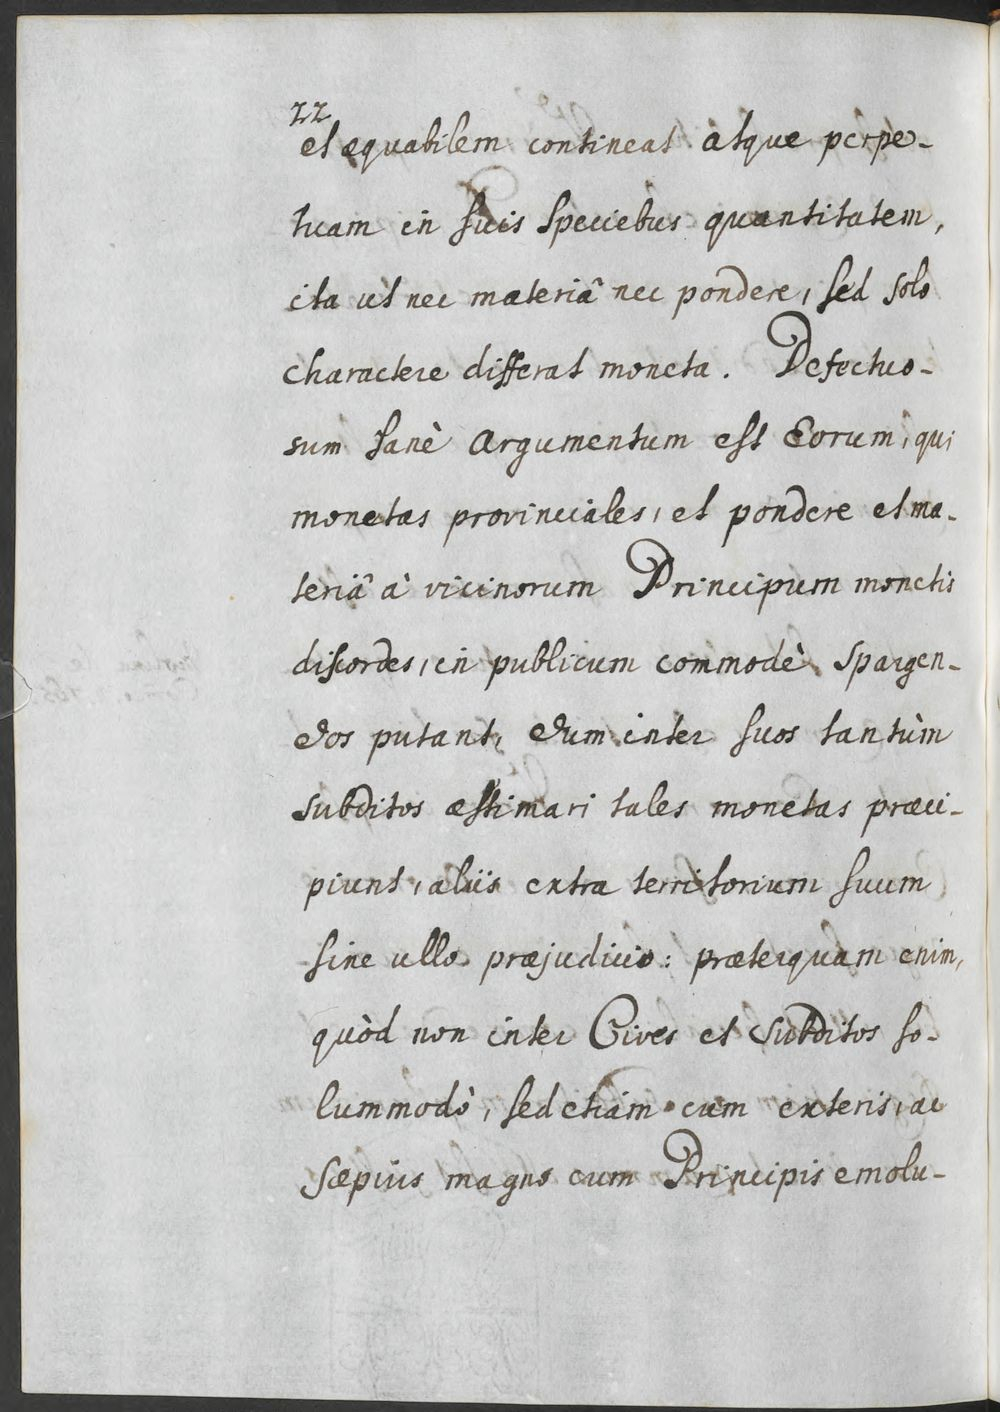 22
et æquabilem contineat atque perpe-
tuam in suis speciebus quantitatem,
ita ut nec materiâ nec pondere, sed solo
charactere differat moneta. Defectuo-
sum sanè argumentum est Eorum, qui
monetas provinciales, et pondere et ma-
teriâ à vicinorum Principum monetis
discordes, in publicum commodè spargen-
dos putant, dum inter suos tantùm
subditos æstimari tales monetas præci-
piunt, aliis extra territorium suum
sine ullo præjudicio: præterquam enim,
quòd non inter Cives et Subditos so-
lummodò, sed etiam cum exteris, ac
sæpius magno cum Principis emolu-